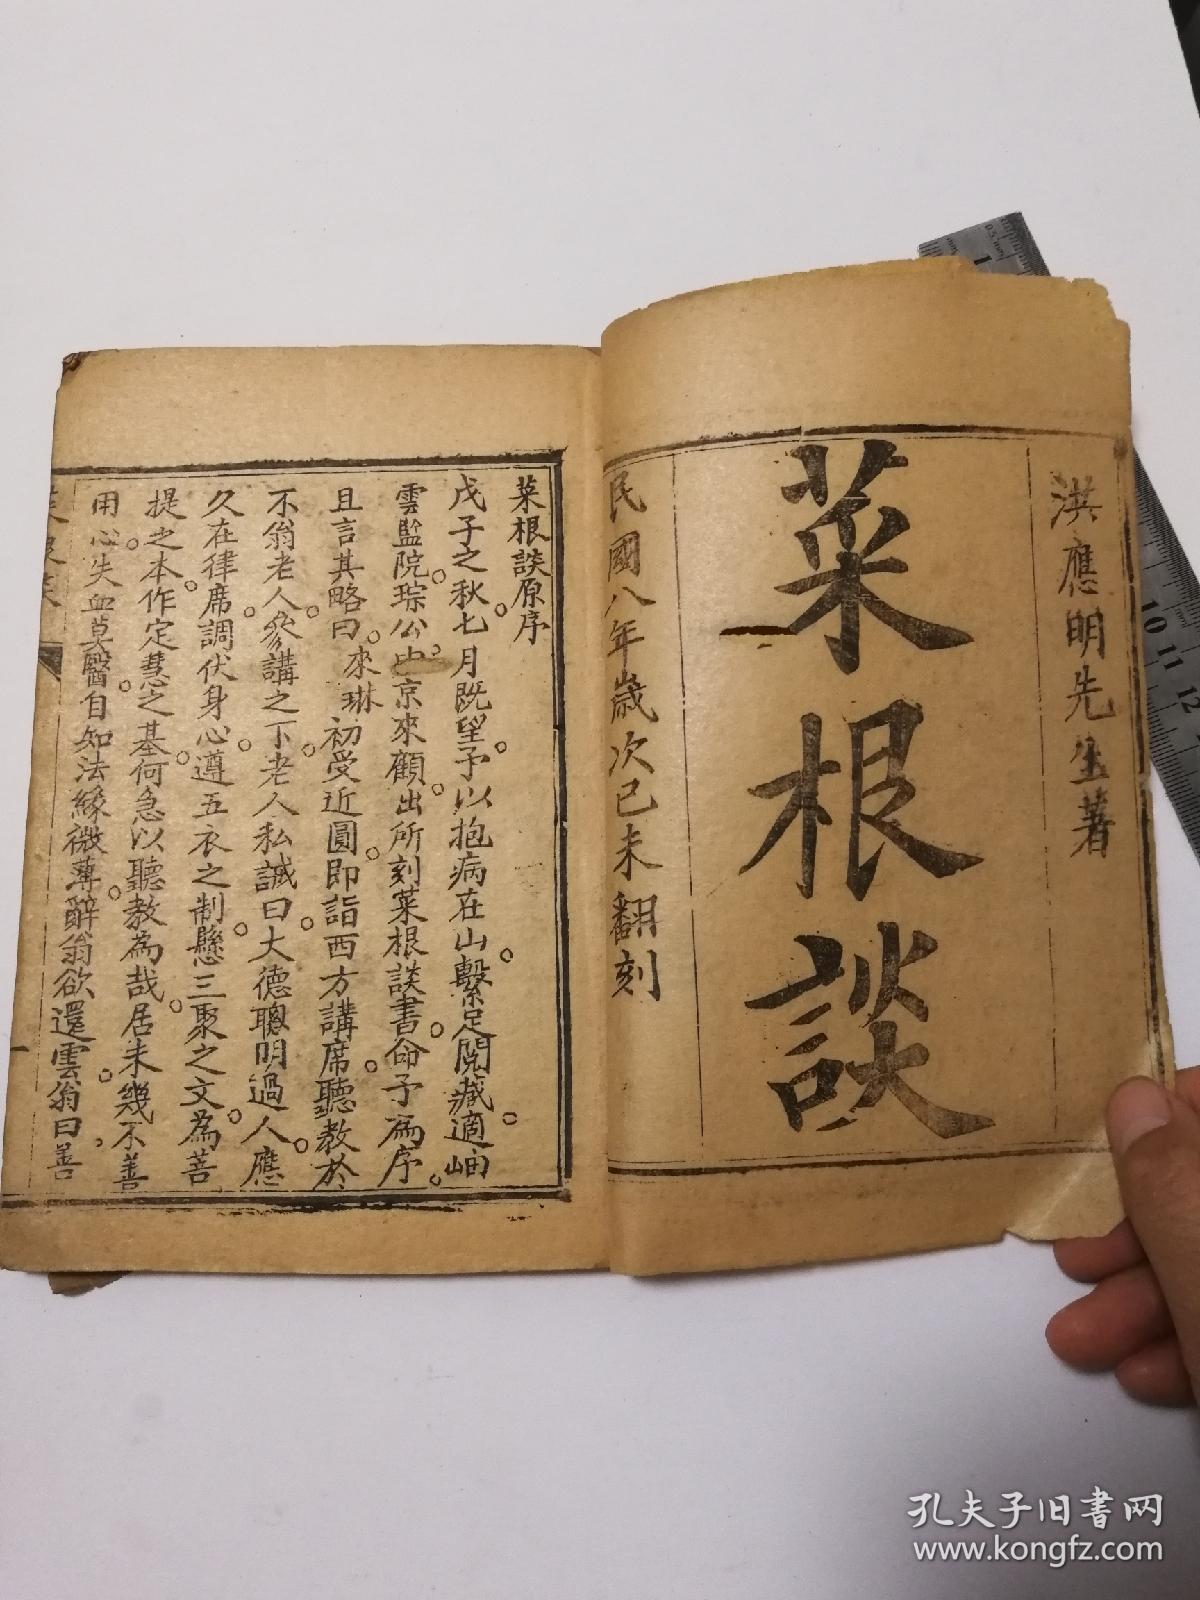 洪應明先生著
菜根談
民國八年歲次己未翻刻
菜根談原序
戊子之秋七月既望予以抱病在山繫足閱藏適岫
雲監院琮公由京來顧出所刻菜根談書命予爲序
且言其略曰來琳初受近圓即詣西方講席聽教於
不翁老人叅講之下老人私誡曰大德聰明過人應
久在律席調伏身心遵五衣之制懸三聚之文為菩
提之本作定慧之基何急以聽教為哉居未幾不善
用心失血莫醫自知法緣微薄辭翁欲還雲翁曰善
孔夫子旧书网
www.kongfz.com
10
11
12
0.5 mm
1